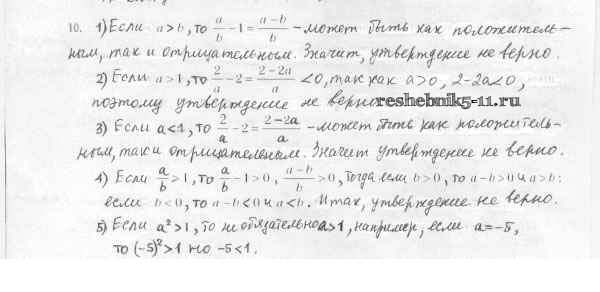 10. 1) Если a > b, то a/b - 1 = (a-b)/b - может быть как положитель-
ным, так и отрицательным. Значит, утверждение не верно.
2) Если a > 1, то 2/a - 2 = (2-2a)/a < 0, так как a > 0, 2-2a < 0,
поэтому утверждение не верно
reshebnik5-11.ru
3) Если a < 1, то 2/a - 2 = (2-2a)/a - может быть как положитель-
ным, так и отрицательным. Значит утверждение не верно.
4) Если a/b > 1, то a/b - 1 > 0, (a-b)/b > 0, тогда если b > 0, то a-b > 0 и a > b:
если b < 0, то a-b < 0 и a < b. Итак, утверждение не верно.
5) Если a² > 1, то не обязательно a > 1, например, если a = -5,
то (-5)² > 1 но -5 < 1.